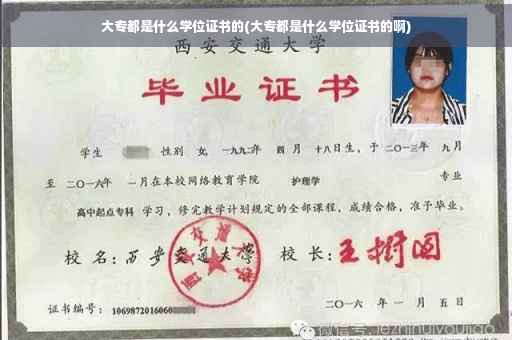 大专都是什么学位证书的(大专都是什么学位证书的啊)
西安交通大学
毕业证书
学生 性别 女, 一九九二年 四 月 十八日生, 于 二〇一三年 九月
至 二〇一六年 一月在本校网络教育学院 护理学 专业
高中起点专科 学习, 修完教学计划规定的全部课程, 成绩合格, 准予毕业。
校 名: 西安交通大学 校 长: 王树国
证书编号: 1069872016060
二〇一六 年 一 月 五 日
微信号: jezhihuiyoujiao